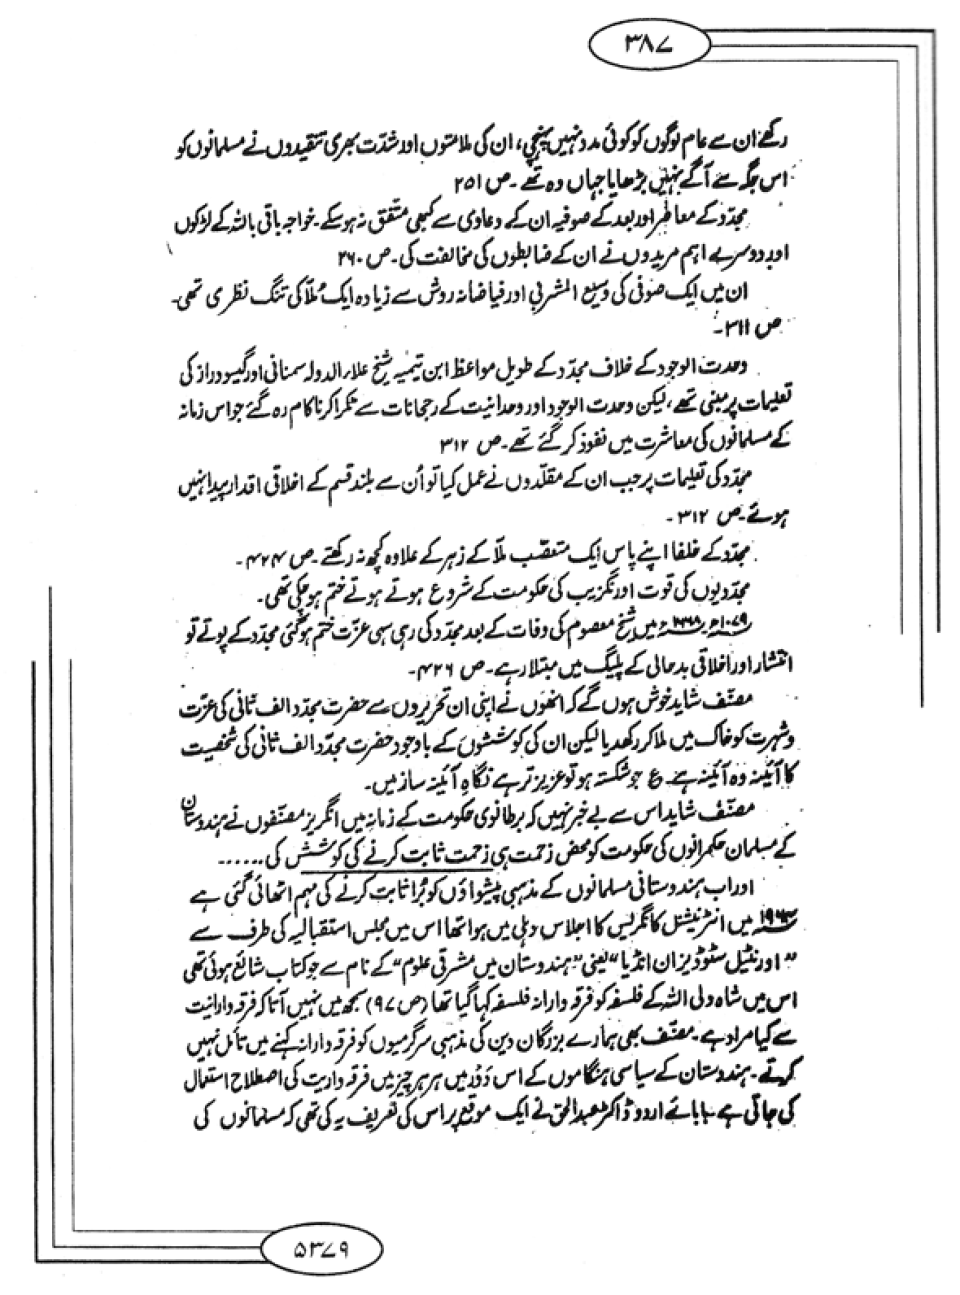 ۳۸۷
رکھے ان سے عام لوگوں کو کوئی مدد نہیں پہنچی، ان کی ملامتوں اور شدّت بھری تنقیدوں نے مسلمانوں کو
اس جگہ سے آگے نہیں بڑھایا جہاں وہ تھے۔ ص ۲۵۱
مجدّد کے معاصر اور بعد کے صوفیہ ان کے دعاوی سے کبھی متّفق نہ ہو سکے۔ خواجہ باقی باللہ کے لڑکوں
اور دوسرے اہم مریدوں نے ان کے ضابطوں کی مخالفت کی۔ ص ۲۶۰
ان میں ایک صوفی کی وسیع المشربی اور فیاضانہ روش سے زیادہ ایک مُلّا کی تنگ نظری تھی۔
ص ۳۱۱۔
وحدت الوجود کے خلاف مجدّد کے طویل مواعظ ابن تیمیہ شیخ علاء الدولہ سمنانی اور گیسو دراز کی
تعلیمات پر مبنی تھے، لیکن وحدت الوجود اور وحدانیت کے رجحانات سے ٹکرا کر ناکام رہ گئے جو اس زمانہ
کے مسلمانوں کی معاشرت میں نفوذ کر گئے تھے۔ ص ۳۱۲
مجدّد کی تعلیمات پر جب ان کے مقلّدوں نے عمل کیا تو اُن سے بلند قسم کے اخلاقی اقدار پیدا نہیں
ہوئے۔ ص ۳۱۲۔
مجدّد کے خلفا اپنے پاس ایک متعصّب ملّا کے زہر کے علاوہ کچھ نہ رکھتے۔ ص ۴۲۴۔
مجدّدیوں کی قوت اورنگزیب کی حکومت کے شروع ہوتے ہوتے ختم ہو چکی تھی۔
۱۰۷۹ھ ۱۶۶۸ء میں شیخ معصوم کی وفات کے بعد مجدّد کی رہی سہی عزّت ختم ہو گئی مجدّد کے پوتے تو
انتشار اور اخلاقی بدحالی کے پلیگ میں مبتلا رہے۔ ص ۴۲۶۔
مصنّف شاید خوش ہوں گے کہ انھوں نے اپنی ان تحریروں سے حضرت مجدّد الف ثانی کی عزّت
و شہرت کو خاک میں ملا کر رکھدیا لیکن ان کی کوششوں کے باوجود حضرت مجدّد الف ثانی کی شخصیت
کا آئینہ وہ آئینہ ہے ع جو شکستہ ہو تو عزیز تر ہے نگاہِ آئینہ ساز میں۔
مصنّف شاید اس سے بے خبر نہیں کہ برطانوی حکومت کے زمانہ میں انگریز مصنّفوں نے ہندوستان
کے مسلمان حکمرانوں کی حکومت کو محض زحمت ہی زحمت ثابت کرنے کی کوشش کی ......
اور اب ہندوستانی مسلمانوں کے مذہبی پیشواؤں کو بُرا ثابت کرنے کی مہم اٹھائی گئی ہے
میں انٹرنیشنل کانگریس کا اجلاس دہلی میں ہوا تھا اس میں مجلس استقبالیہ کی طرف سے
"اورنٹیل سٹوڈیز ان انڈیا" یعنی "ہندوستان میں مشرقی علوم" کے نام سے جو کتاب شائع ہوئی تھی
اس میں شاہ ولی اللہ کے فلسفہ کو فرقہ وارانہ فلسفہ کہا گیا تھا (ص ۹۷) سمجھ میں نہیں آتا کہ فرقہ وارانیت
سے کیا مراد ہے۔ مصنّف بھی ہمارے بزرگان دین کی مذہبی سرگرمیوں کو فرقہ وارانہ کہنے میں تأمل نہیں
کرتے۔ ہندوستان کے سیاسی ہنگاموں کے اس دَور میں ہر ہر چیز میں فرقہ واریت کی اصطلاح استعمال
کی جاتی ہے۔ بابائے اردو ڈاکٹر عبدالحق نے ایک موقع پر اس کی تعریف یہ کی تھی کہ مسلمانوں کی
۵۳۷۹